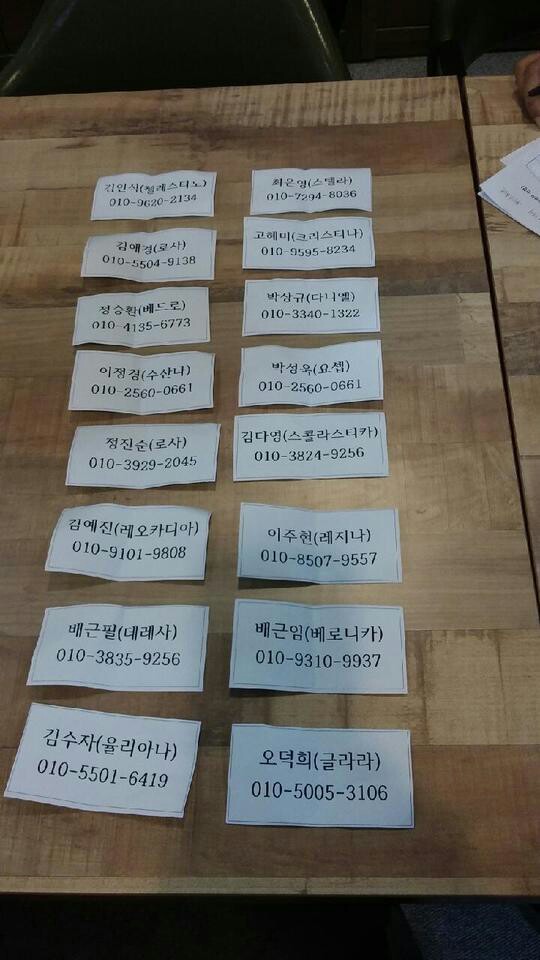 김인식(첼레스티노)
010-9620-2134
최은영(스텔라)
010-7294-8036
김애경(로사)
010-5504-9138
고혜미(크리스티나)
010-9595-8234
정승환(베드로)
010-4135-6773
박상규(다니엘)
010-3340-1322
이정겸(수산나)
010-2560-0661
박성욱(요셉)
010-2560-0661
정진순(로사)
010-3929-2045
김다영(스콜라스티카)
010-3824-9256
김예진(레오카디아)
010-9101-9808
이주현(레지나)
010-8507-9557
배근필(데레사)
010-3835-9256
배근임(베로니카)
010-9310-9937
김수자(율리아나)
010-5501-6419
오덕희(글라라)
010-5005-3106